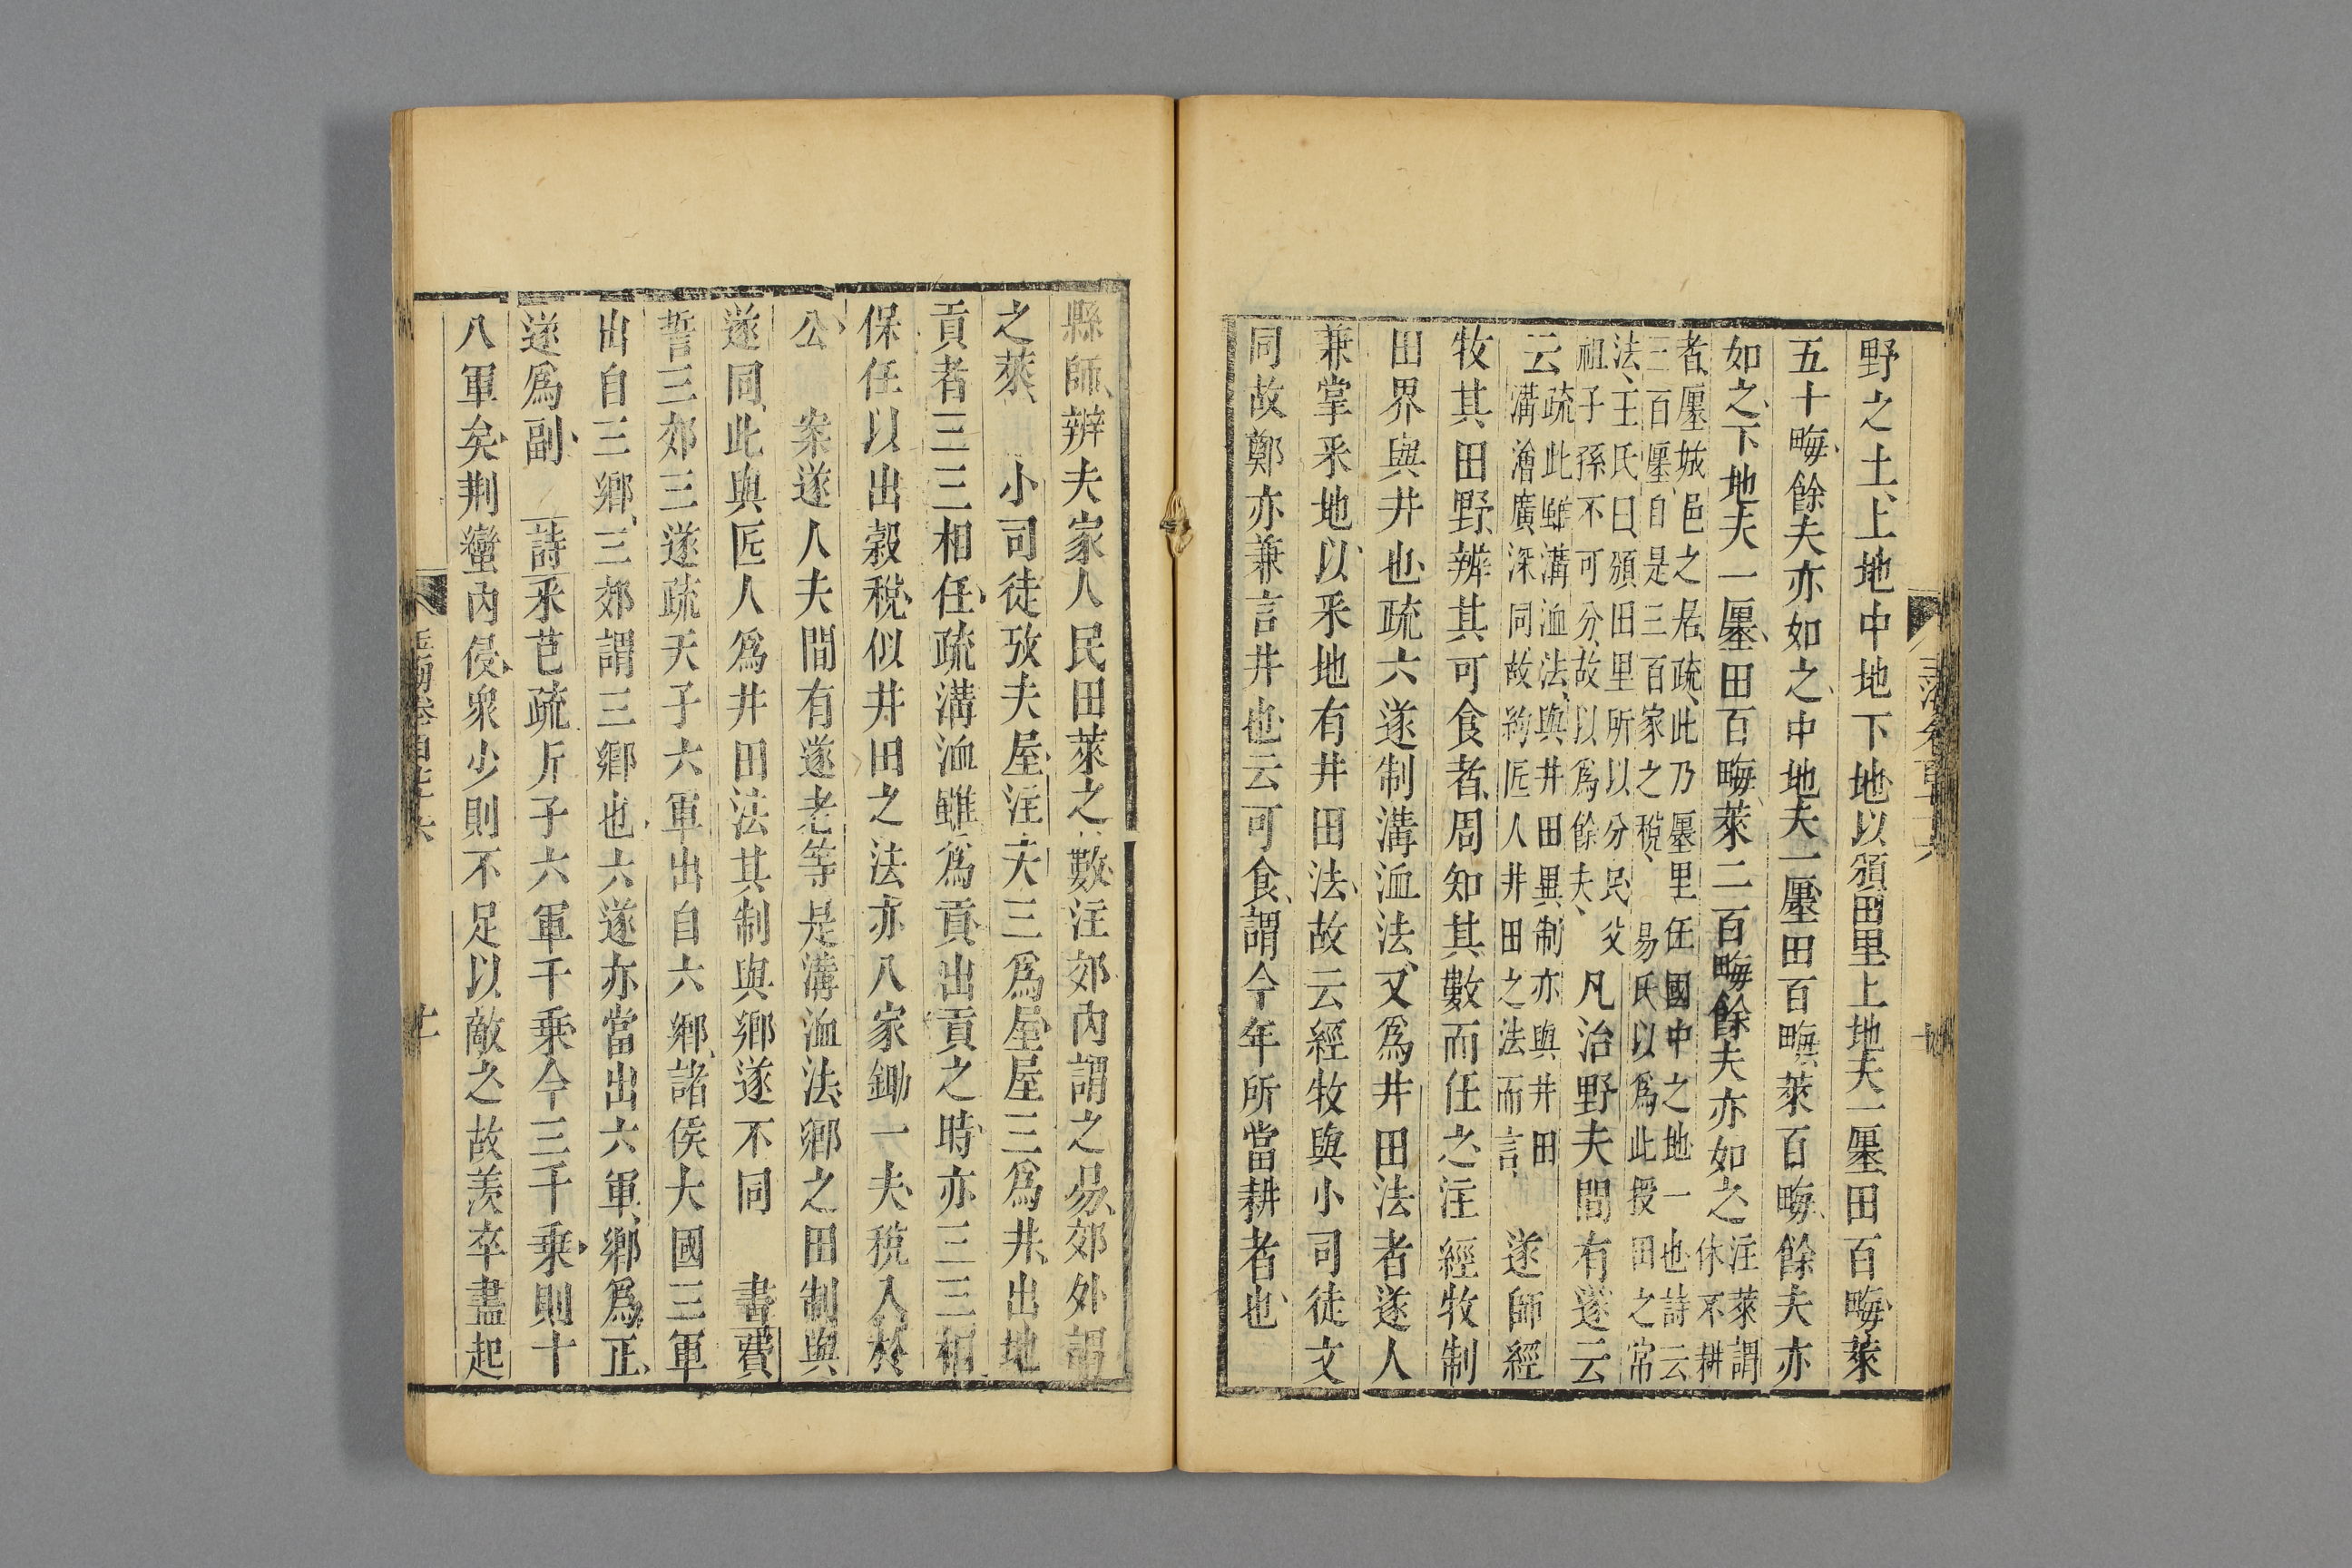 野之土、上地中地下地以頒田里上地夫一廛、田百畮、萊
五十畮、餘夫亦如之、中地夫一廛田百畮、萊百畮、餘夫亦
如之、下地夫一廛、田百畮、萊二百畮、餘夫亦如之、注萊謂
休不耕
者、廛城邑之居、疏、此乃廛里任國中之地一也詩云
三百廛、自是三百家之稅、易氏以爲此授田之常
法、王氏曰、頒田里所以分民父
祖子孫不可分、故以爲餘夫、凡治野夫間有遂云
云疏此雖溝洫法、與井田異制亦與井田
溝澮廣深同、故約匠人井田之法而言、遂師經
牧其田野、辨其可食者、周知其數而任之注經牧制
田界與井也、疏六遂制溝洫法、又爲井田法者遂人
兼掌釆地、以釆地有井田法、故云經牧與小司徒文
同故鄭亦兼言井也、云可食、謂今年所當耕者也、
縣師、辨夫家人民田萊之數、注郊內謂之易、郊外謂
之萊、小司徒攷夫屋、注夫三爲屋、屋三爲井、出地
貢者三三相任、疏溝洫雖爲貢、出貢之時、亦三三相
保任以出穀稅、似井田之法亦八家鋤一夫、稅入於
公、案遂人夫間有遂老等是溝洫法、鄉之田制與
遂同、此與匠人爲井田法其制與鄉遂不同書費
誓三郊三遂疏天子六軍出自六鄉、諸侯大國三軍
出自三鄉、三郊謂三鄉也、六遂亦當出六軍、鄉爲正、
遂爲副、詩釆芑疏斤子六軍千乘、今三千乘、則十
八軍矣、荆蠻內侵、衆少則不足以敵之故羨卒盡起